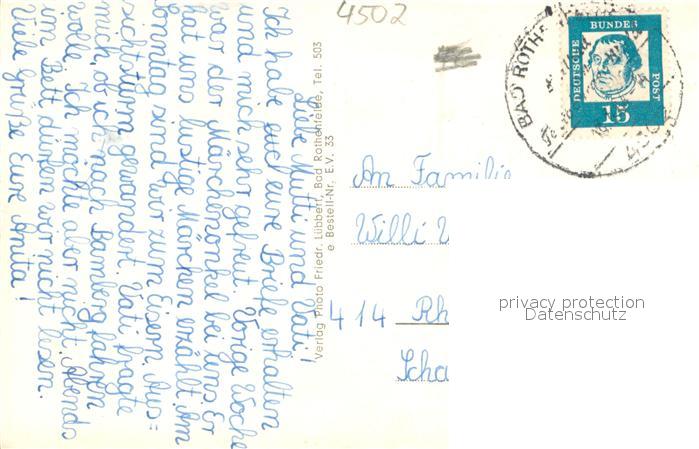 4502
Liebe Mutti und Vati!
Ich habe euch eure Briefe erhalten
und mich sehr gefreut. Vorige Woche
war der Märchenonkel bei uns. Er
hat uns lustige Märchen erzählt. Am
Sonntag sind wir zum Eisern. Aus=
sichtsturm gewandert. Vati fragte
mich, ob ich nach Bamberg fahren
wolle. Ich möchte aber nicht. Abends
im Bett dürfen wir nicht lesen.
Viele Grüße Eure Anita!
Verlag Photo Friedr. Lübbert, Bad Rothenfelde, Tel. 503
e Bestell-Nr. E.V. 33
BAD ROTHE
DEUTSCHE
BUNDES
POST
15
An Familie
Willi
414 Rh
Scha
privacy protection
Datenschutz